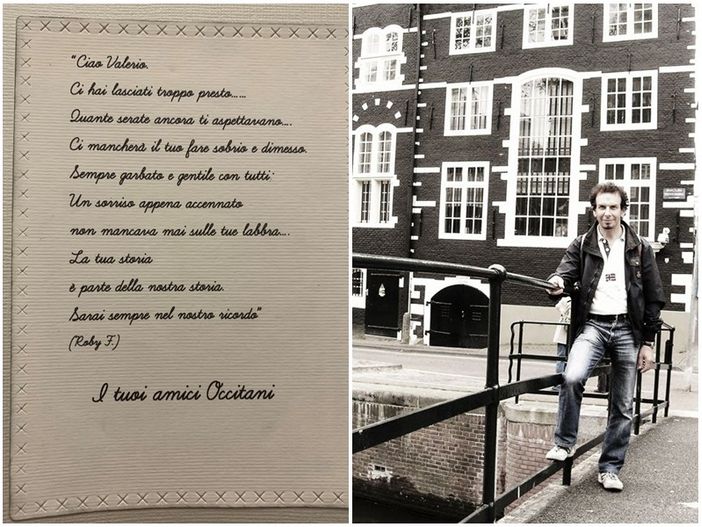 “Ciao Valerio.
Ci hai lasciati troppo presto......
Quante serate ancora ti aspettavano....
Ci mancherà il tuo fare sobrio e dimesso.
Sempre garbato e gentile con tutti.
Un sorriso appena accennato
non mancava mai sulle tue labbra....
La tua storia
è parte della nostra storia.
Sarai sempre nel nostro ricordo”
(Roby F.)
I tuoi amici Occitani